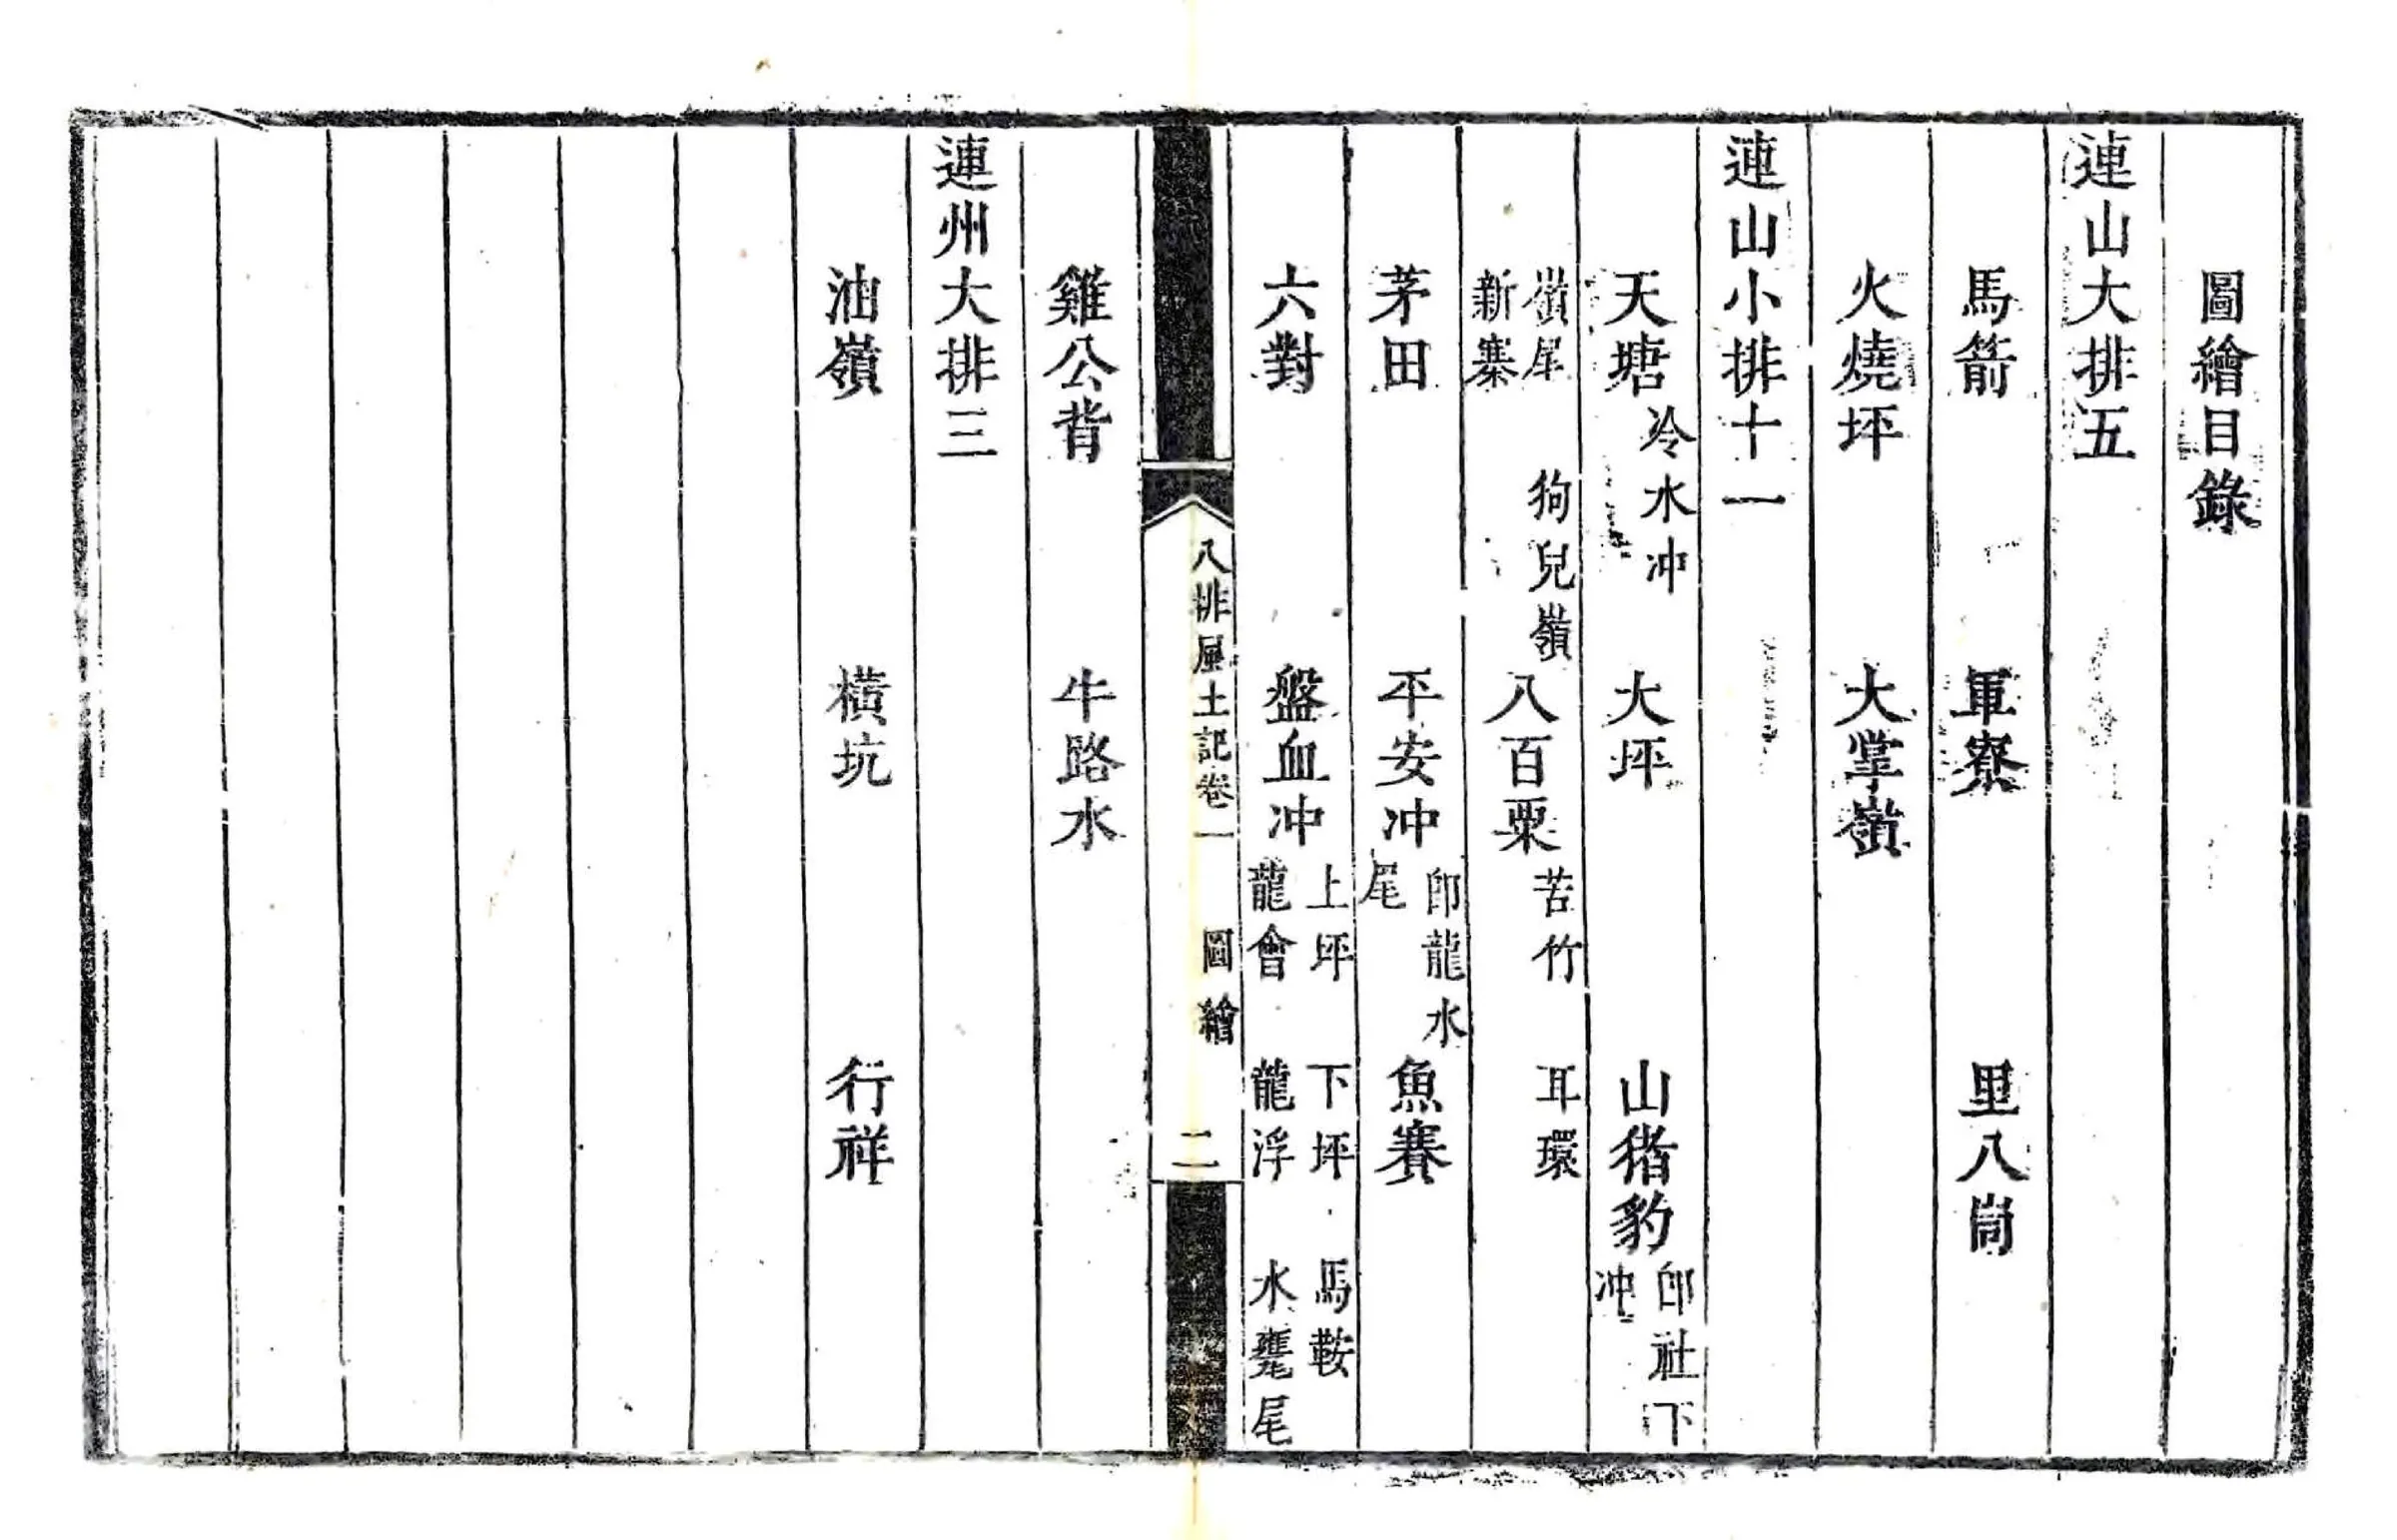 圖繪目錄
連山大排五
馬箭 軍寮 里八峝
火燒坪 大掌嶺
連山小排十一
天塘 冷水冲 大坪 山猪豹 卽社下冲
嶺尾 新寨 狗兒嶺 八百粟 苦竹 耳環
茅田 平安冲 卽龍水尾 魚賽
六對 盤血冲 上坪 下坪 馬鞍 龍會 龍浮 水甕尾
八排風土記卷一 圖繪 二
雞公背 牛路水
連州大排三
油嶺 橫坑 行祥